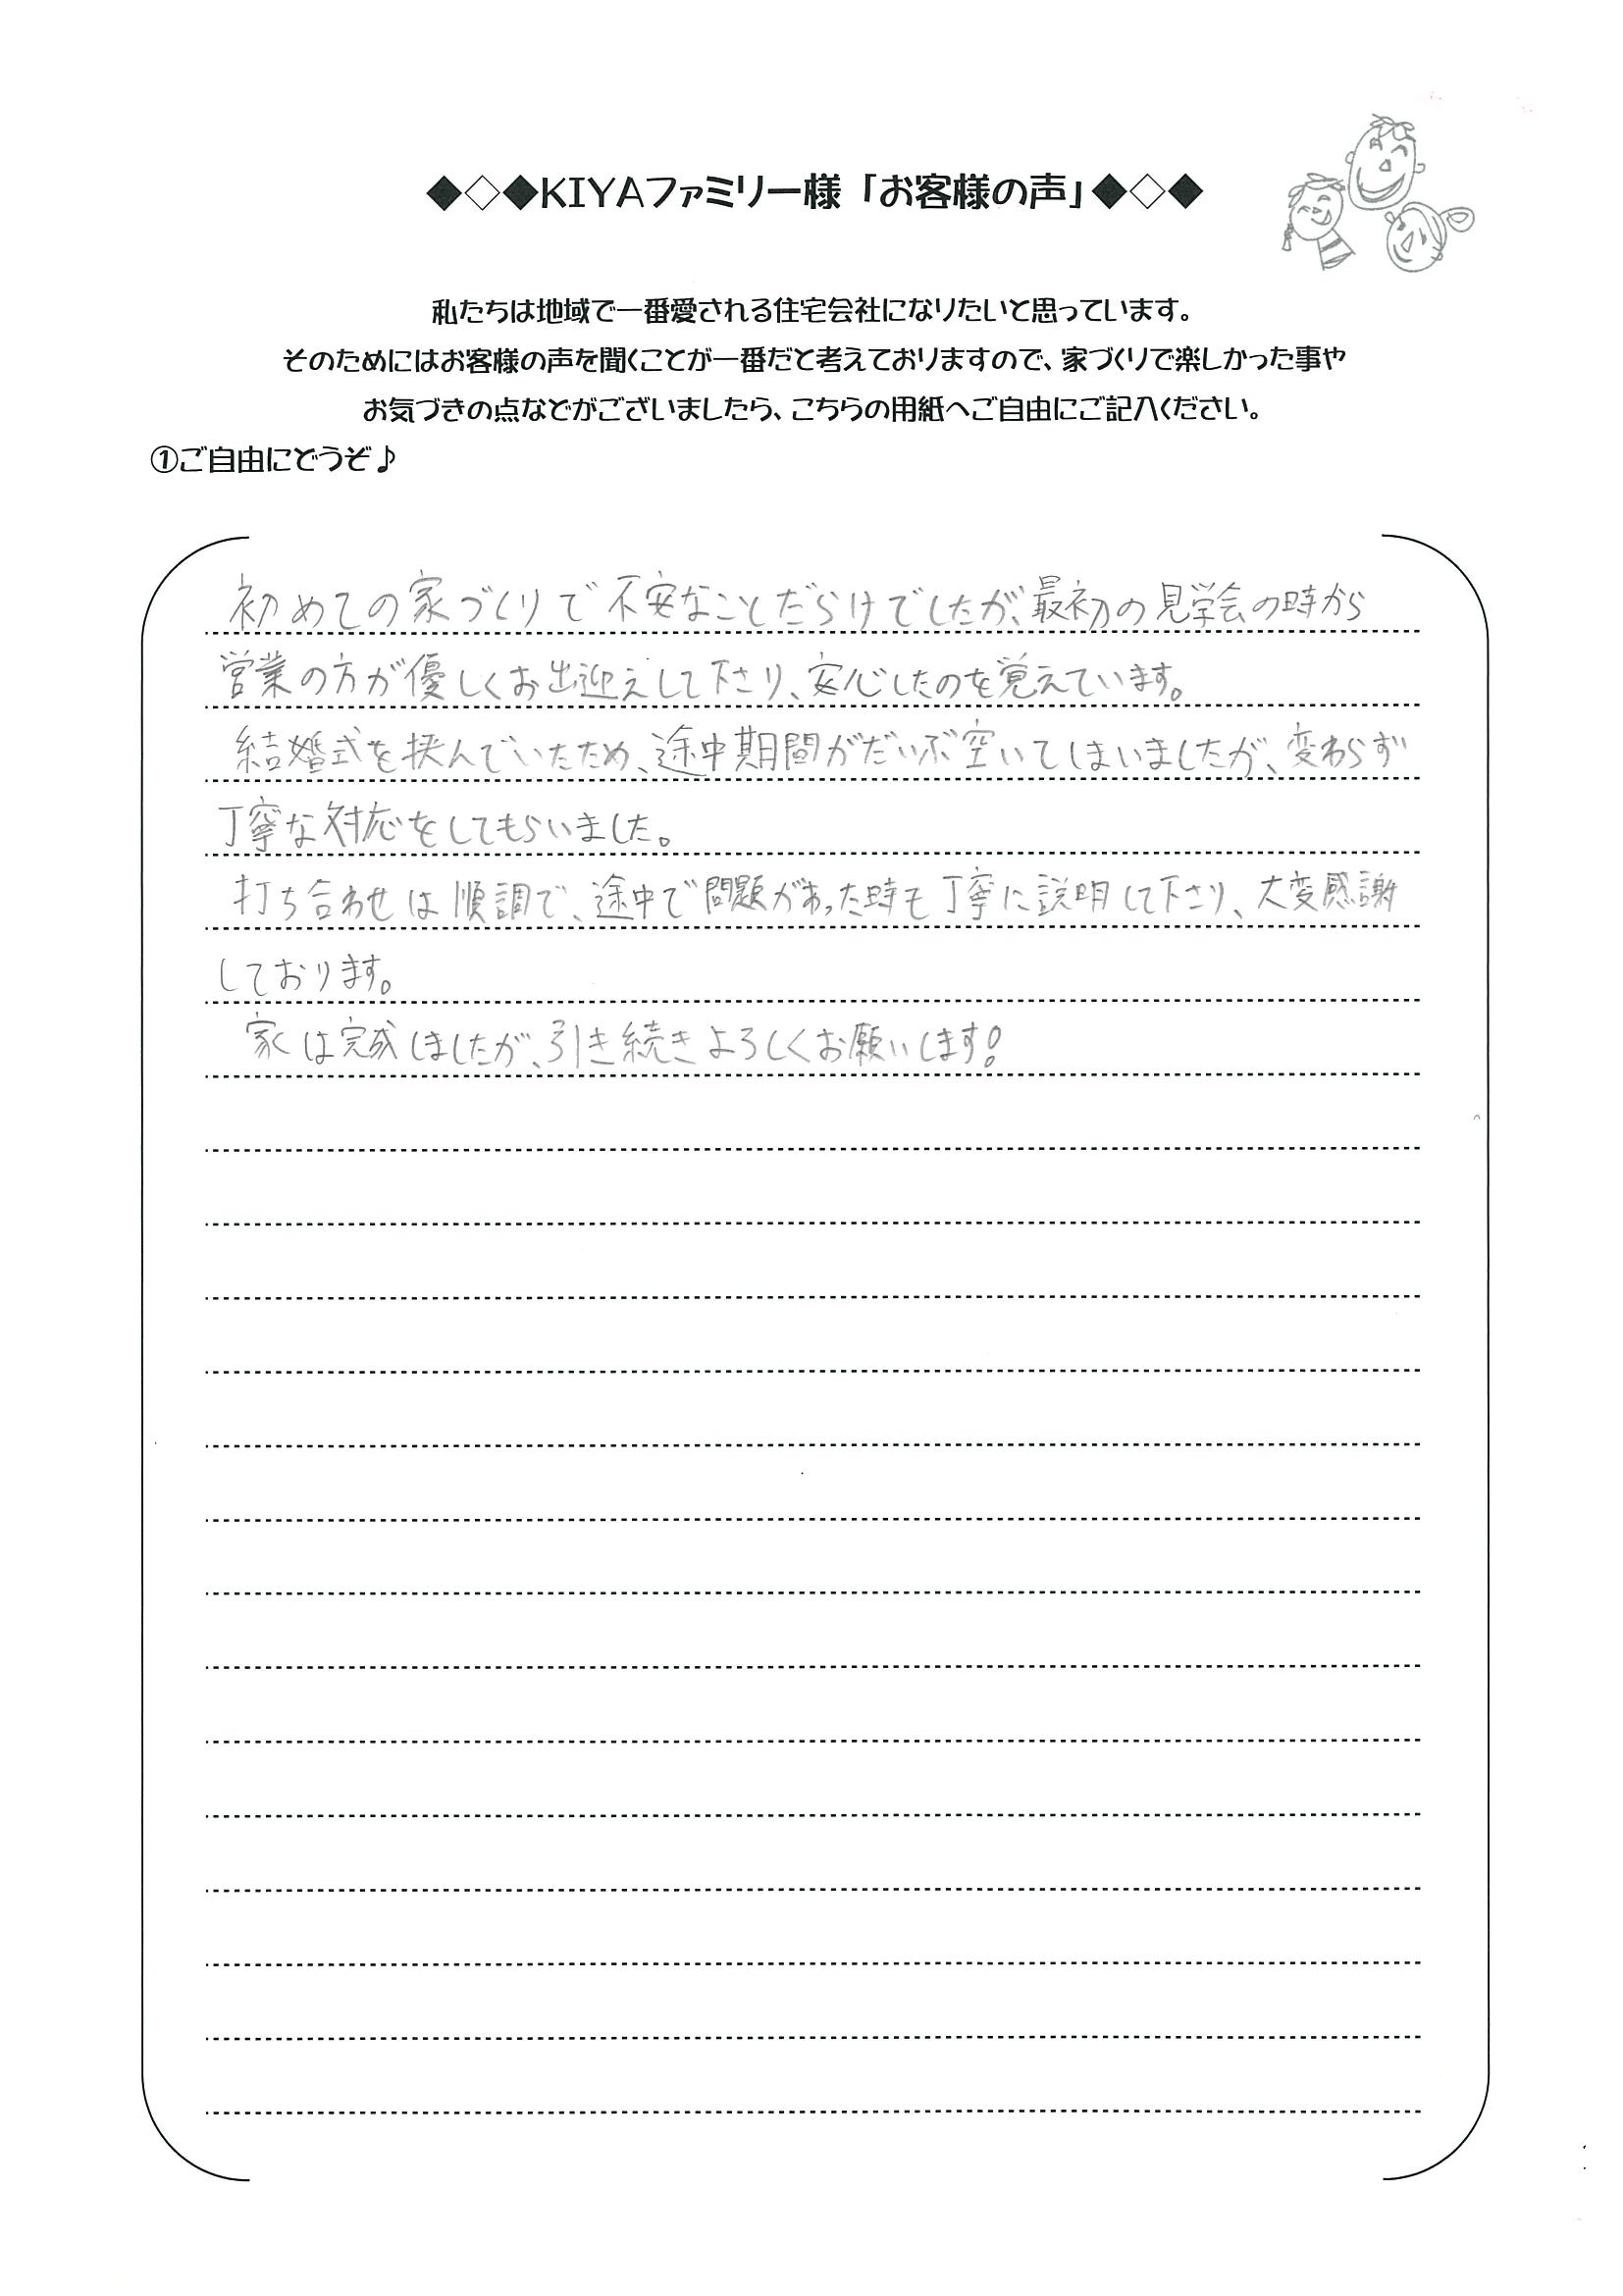 ◆◇◆KIYAファミリー様「お客様の声」◆◇◆
私たちは地域で一番愛される住宅会社になりたいと思っています。
そのためにはお客様の声を聞くことが一番だと考えておりますので、家づくりで楽しかった事や
お気づきの点などがございましたら、こちらの用紙へご自由にご記入ください。
①ご自由にどうぞ♪
初めての家づくりで不安なことだらけでしたが、最初の見学会の時から
営業の方が優しくお出迎えして下さり、安心したのを覚えています。
結婚式を挟んでいたため、途中期間がだいぶ空いてしまいましたが、変わらず
丁寧な対応をしてもらいました。
打ち合わせは順調で、途中で問題があった時も丁寧に説明して下さり、大変感謝
しております。
家は完成しましたが、引き続きよろしくお願いします!